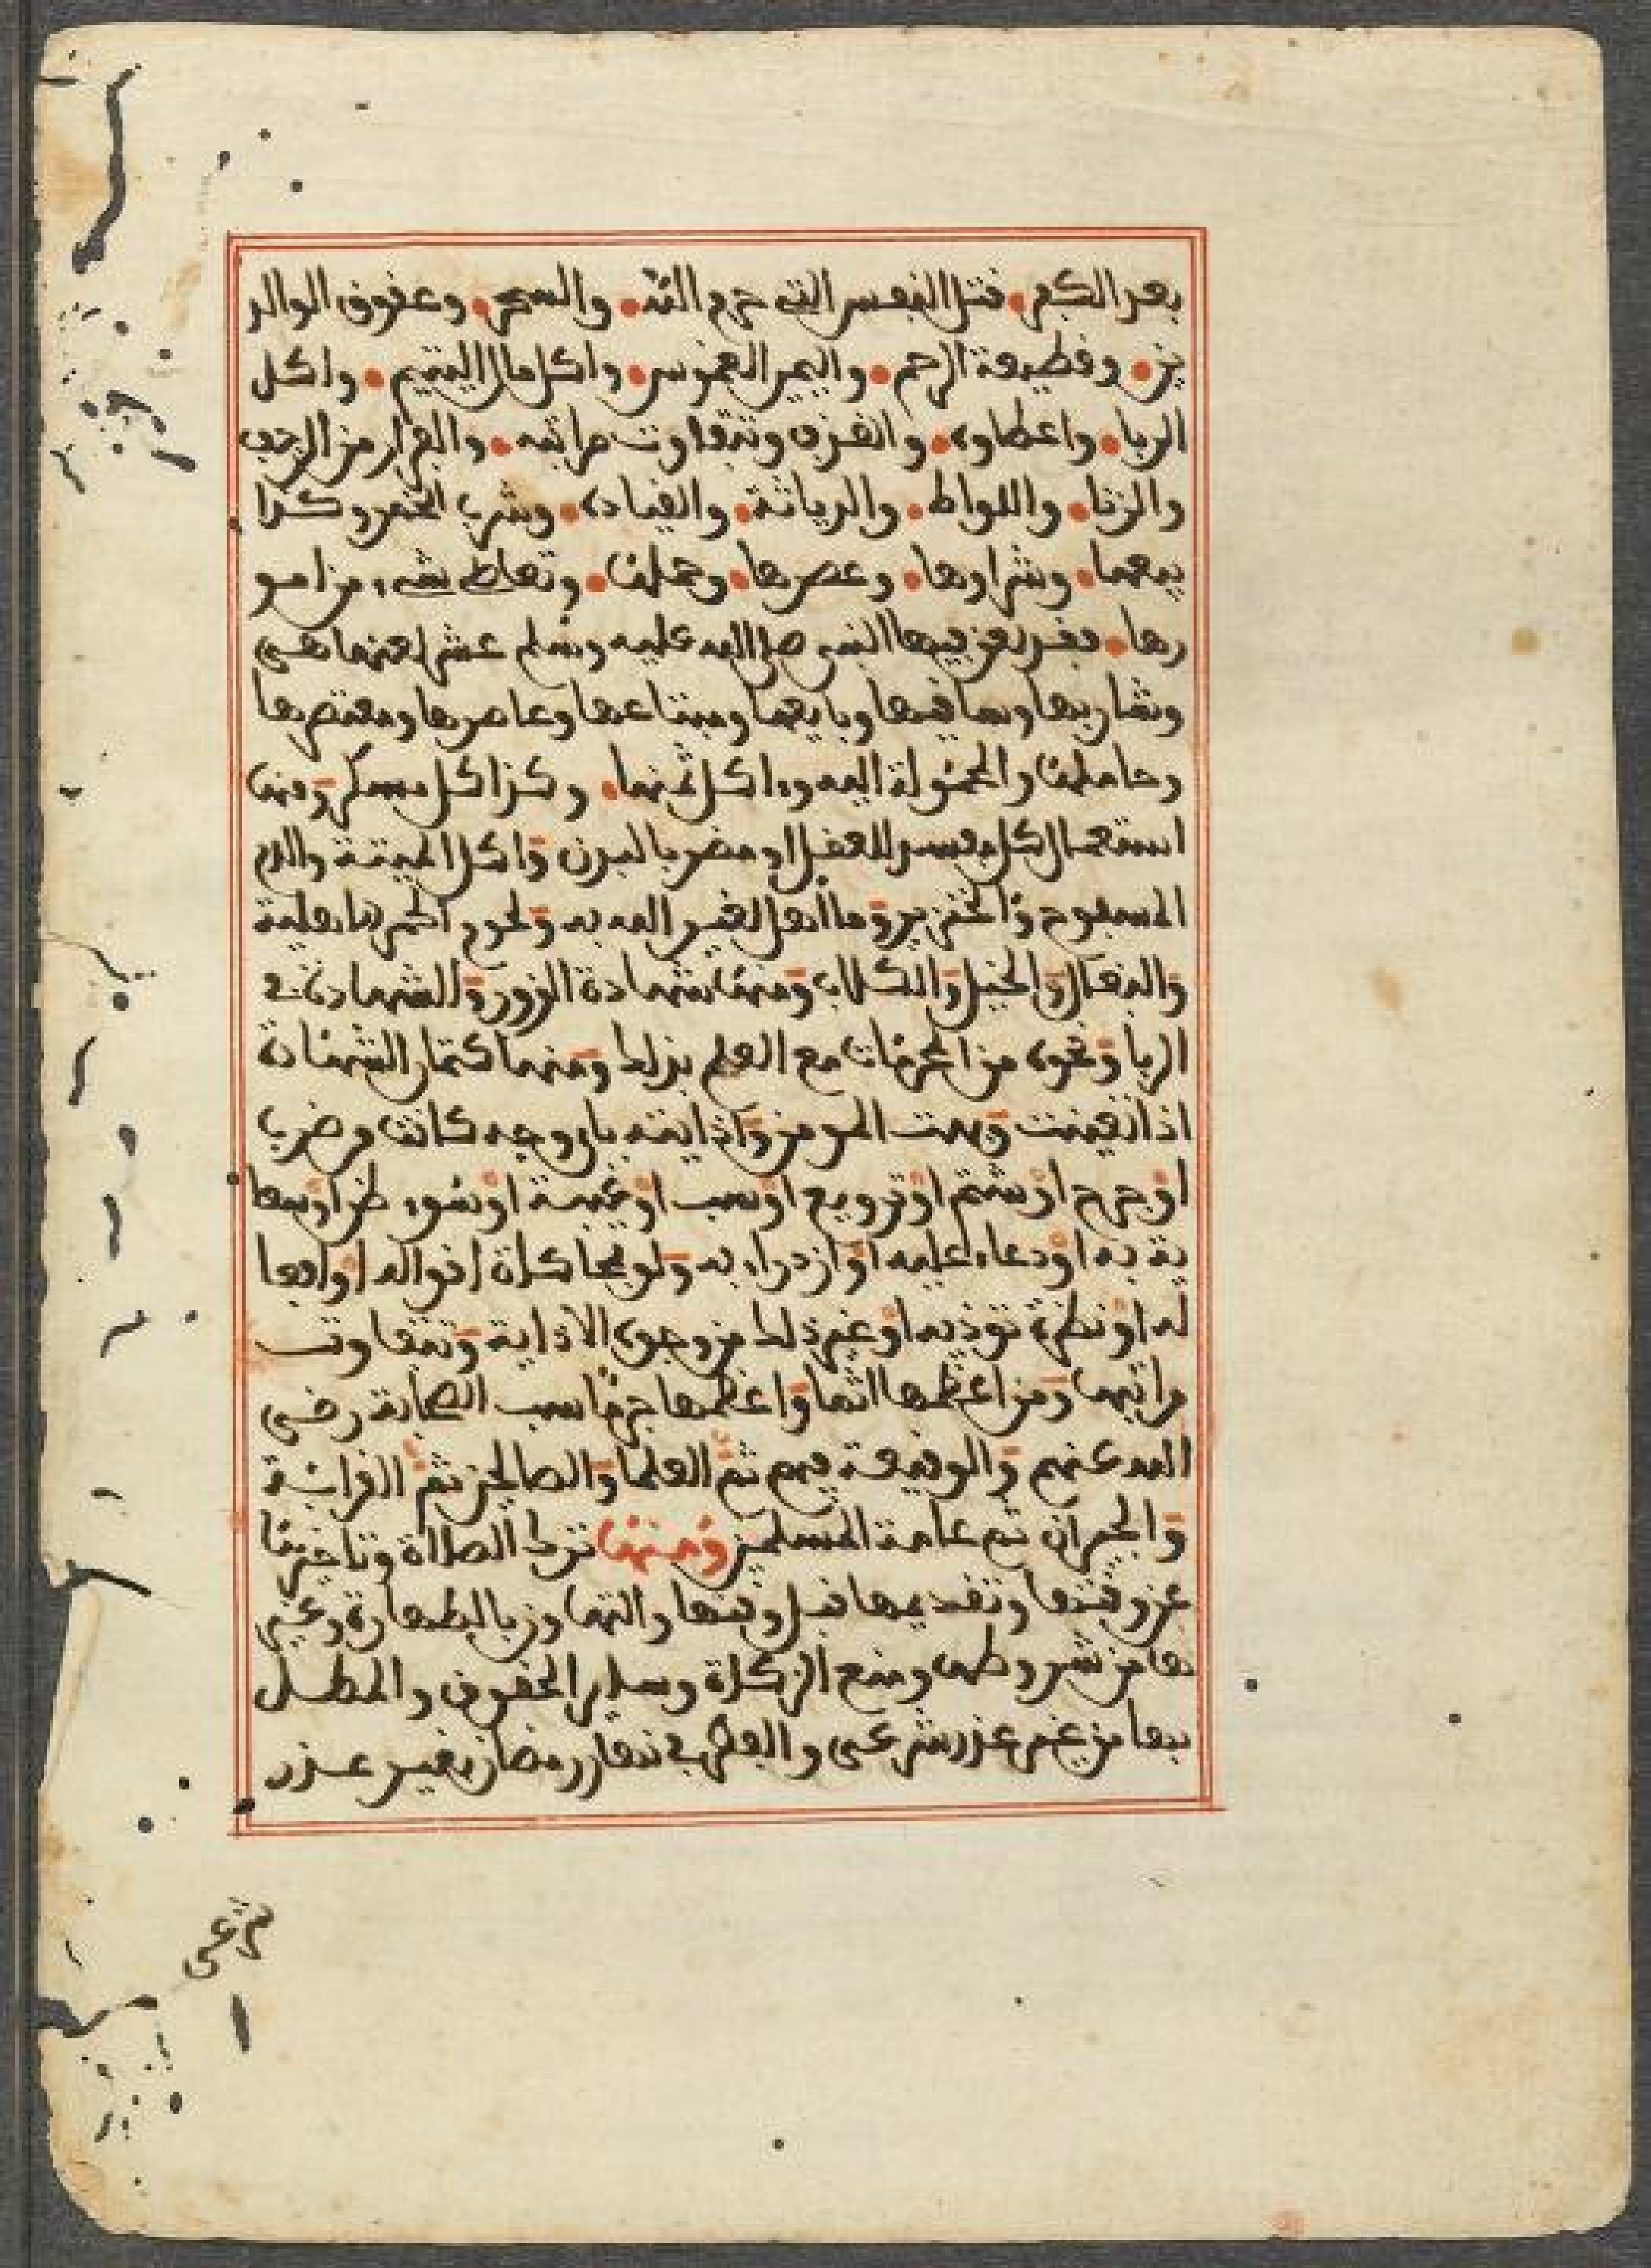 بعد الكفر قتل النفس التي حرم الله والسحر وعقوق الوالد
ين وقطيعة الرحم واليمين الغموس واكل مال اليتيم واكل
الربا واعطاوه والقذف وتتفاوت مراتبه والفرار من الزحف
والزنا واللواط والدياثة والقيادة وشرب الخمر وكذا
بيعها وشراوها وعصرها وحملها وتعاطى شيء من امو
رها فقد لعن فيها النبي صلى الله عليه وسلم عشر لعنها هي
وشاربها وساقيها وبايعها ومبتاعها وعاصرها ومعتصرها
وحاملها والمحمولة اليه وءاكل ثمنها وكذا كل مسكر ومنها
استعمال كل مفسد للعقل او مضر بالبدن واكل الميتة والدم
المسفوح والخنزير وما أهل لغير الله به ولحوم الحمر
والبغال والخيل والكلاب ومنها شهادة الزور والشهادة في
الربا ونحوه من المحرمات مع العلم بذلك ومنها كتمان الشهادة
اذا تعينت وبهت المومن واذايته باي وجه كانت من ضرب
او جرح او شتم او ترويع او سب او غيبة او سوء ظن او سعا
ية به او دعاء عليه او ازدراء به ولو بمحاكاة اقواله او افعا
له او نظرة توذيه او غير ذلك من وجوه الاذاية وتتفاوت
مراتبها ومن اعظمها اثما واعظمها جرما سب الصحابة رضي
الله عنهم والوقيعة فيهم ثم العلما والصالحين ثم القرابة
والجيران ثم عامة المسلمين ومنها ترك الصلاة وتاخيرها
عن وقتها وتقديمها قبل وقتها والتهاون بالطهارة وغير
ها من شروطها ومنع الزكاة وساير الحقوق والمطل
بها من غير عذر شرعي والفطر في نهار رمضان بغير عذر
شرعي